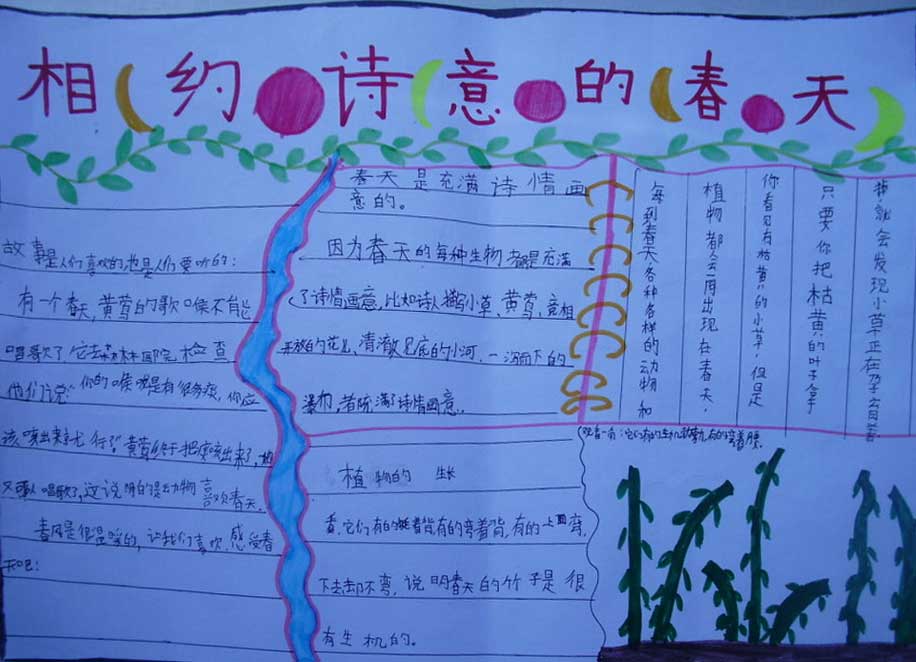 相约诗意的春天
故事是人们喜欢的也是人们要听的:
有一个春天,黄莺的歌喉不能
唱歌了它去森林医院检查
他们说:"你的喉咙是有很多痰,你应
该咳出来就行了"黄莺终于把痰咳出来了,
又可以唱歌了,这说明的是动物喜欢春天.
春风是很温暖的,让我们喜欢,感受春
天吧!
春天是充满诗情画
意的。
因为春天的每种生物都是充满
了诗情画意,比如诗人描写小草、黄莺、竞相
开放的花儿、清澈见底的小河,一泻而下的
瀑布,都充满了诗情画意..
植物的生长
看,它们有的挺着背有的弯着背,有的上面弯,
下去却不弯,说明春天的竹子是很
有生机的。
每到春天各种各样的动物和
植物都会一同出现在春天,
你看见有枯黄的小草,但是
只要你把枯黄的叶子拿
掉,就会发现小草正在孕育着
它们有的生机勃勃,有的弯着腰.